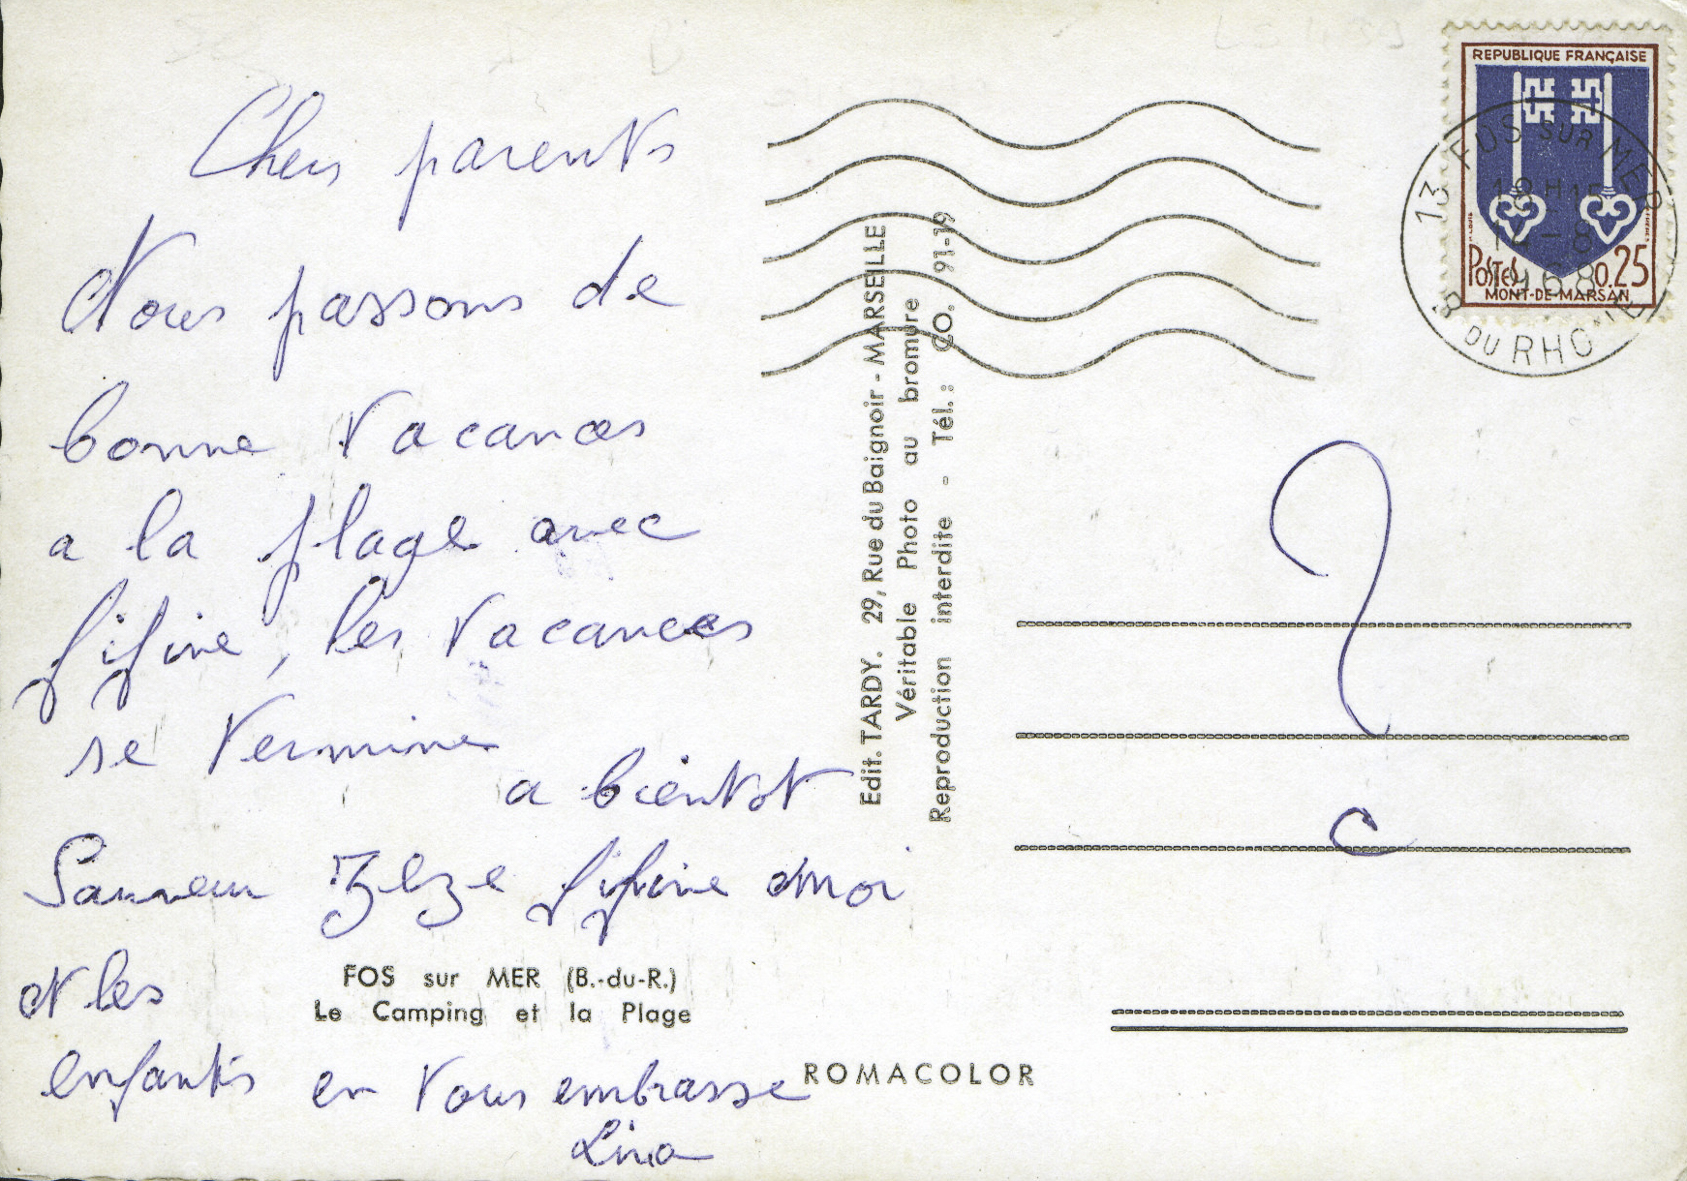 Chers parents
Nous passons de
bonne vacances
a la plage avec
fifine, les vacances
se termine
a bientot
Sauveur Zeze fifine moi
et les
enfants on vous embrasse
Lina
FOS sur MER (B.-du-R.)
Le Camping et la Plage
ROMACOLOR
Edit. TARDY. 29, Rue du Baignoir - MARSEILLE
Véritable Photo au bromure
Reproduction interdite - Tél.: CO. 91-19
REPUBLIQUE FRANÇAISE
POSTES 0.25
MONT-DE-MARSAN
13 FOS SUR MER
18H15
14-8
1968
B DU RHONE